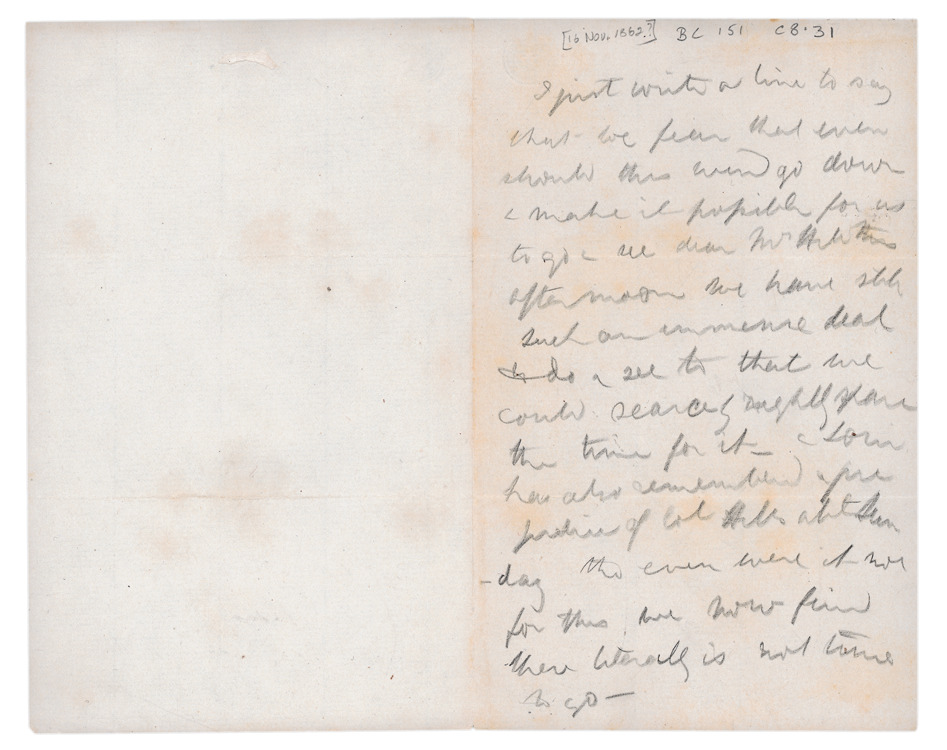 [16 Nov. 1862.?] BC 151 C8.31
I just write a line to say
that we fear that even
should this wind go down
& make it possible for us
to go & see dear Mrs this
afternoon we have still
such an immense deal
to do & see to that we
could scarcely rightly spare
the time for it — &
has also remembered a pre
judice of Col abt Sun
-day tho even were it not
for this we now find
there literally is not time
to go —